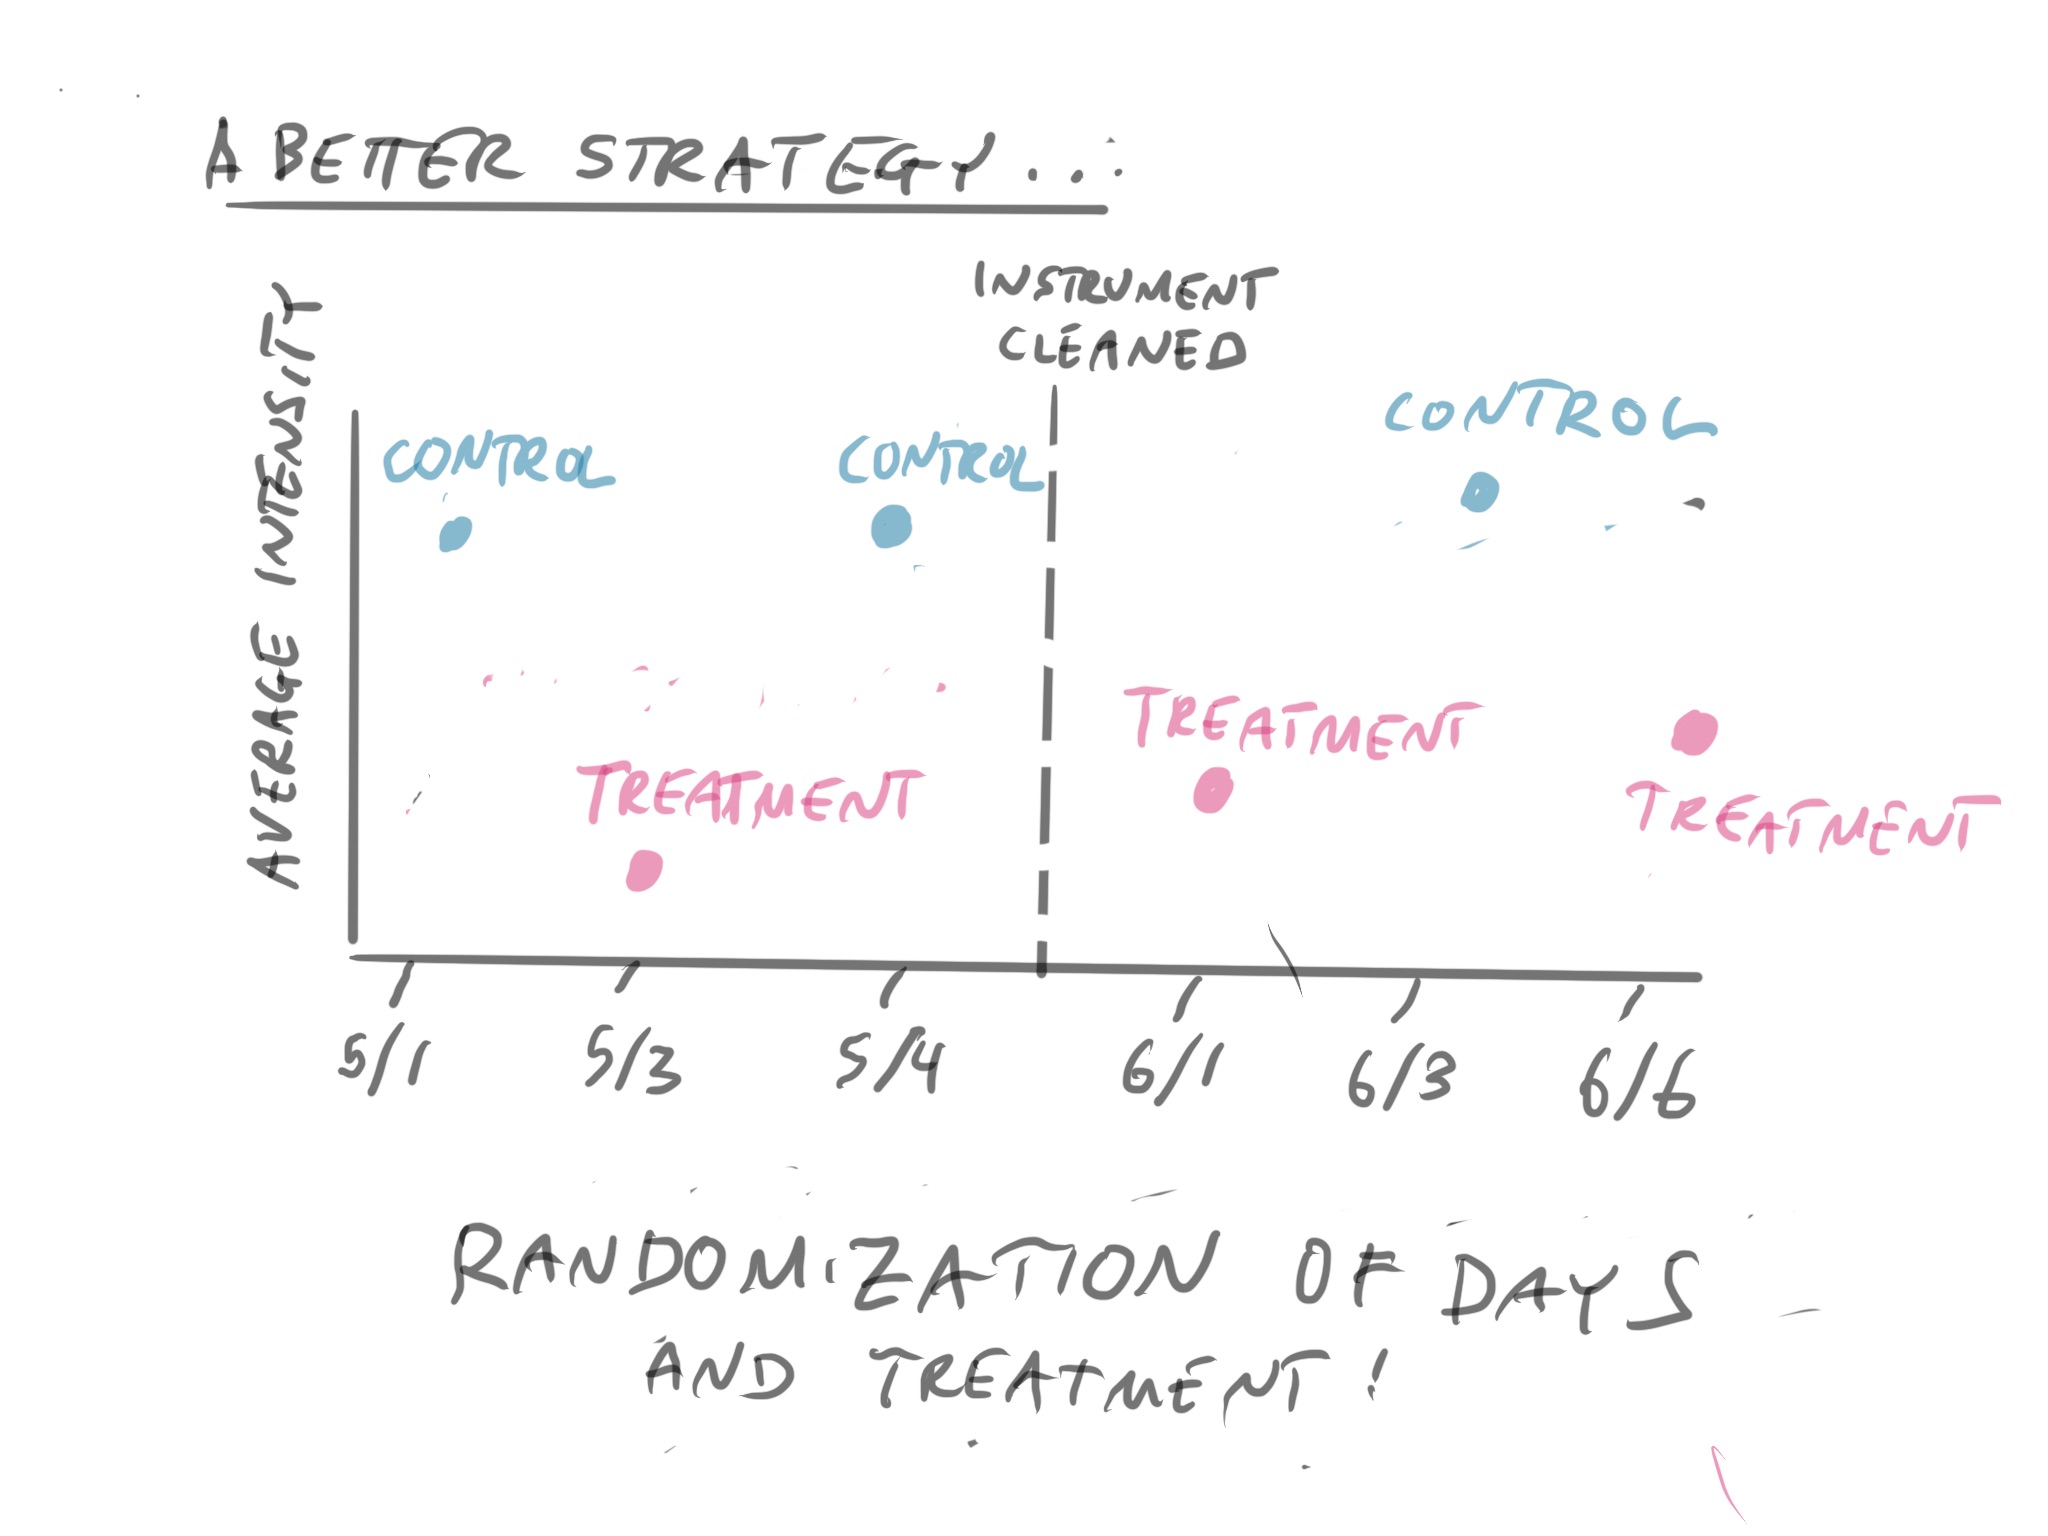 A BETTER STRATEGY...
INSTRUMENT
CLEANED
AVERAGE INTENSITY
CONTROL
CONTROL
CONTROL
TREATMENT
TREATMENT
TREATMENT
5/1 5/3 5/4 6/1 6/3 6/6
RANDOMIZATION OF DAYS
AND TREATMENT!